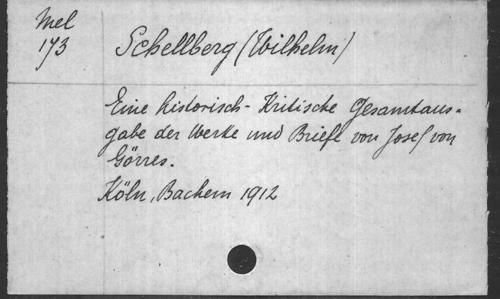 Mel
173
Schellberg (Wilhelm)
Eine historisch-Kritische Gesamtaus-
gabe der Werke und Briefe von Josef von
Görres.
Köln, Bachem 1912